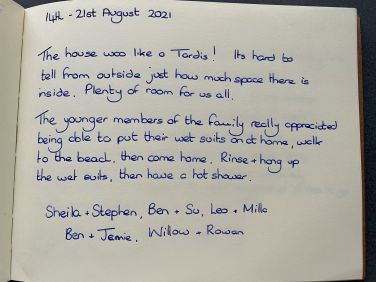 14th - 21st August 2021
The house was like a Tardis! Its hard to
tell from outside just how much space there is
inside. Plenty of room for us all.
The younger members of the family really appreciated
being able to put their wet suits on at home, walk
to the beach, then come home. Rinse + hang up
the wet suits, then have a hot shower.
Sheila + Stephen, Ben + Su, Leo + Milla
Ben + Jamie, Willow + Rowan